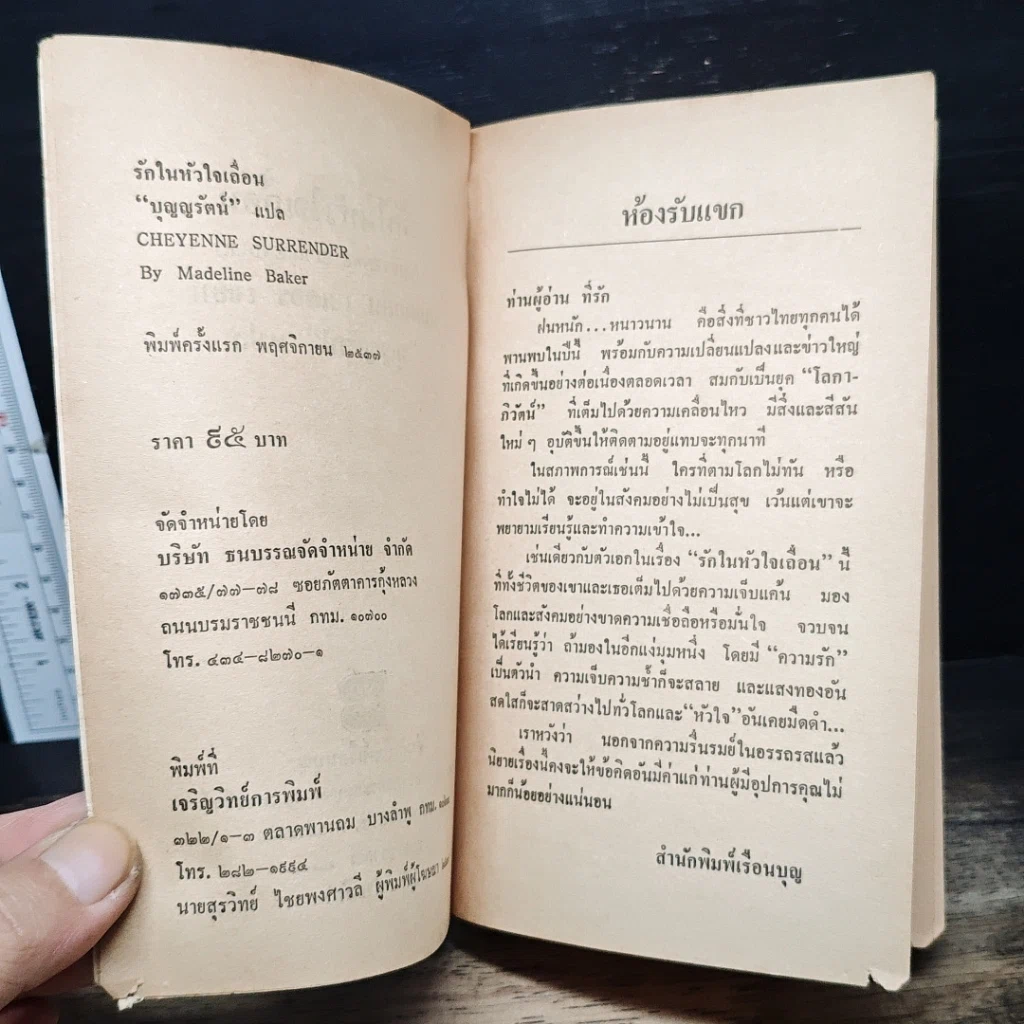 รักในหัวใจเถื่อน
“บุญญรัตน์” แปล
CHEYENNE SURRENDER
By Madeline Baker
พิมพ์ครั้งแรก พฤศจิกายน ๒๕๓๗
ราคา ๙๕ บาท
จัดจำหน่ายโดย
บริษัท ธนบรรณจัดจำหน่าย จำกัด
๑๗๓๕/๗๗–๗๘ ซอยภัตตาคารกุ้งหลวง
ถนนบรมราชชนนี กทม. ๑๐๗๐๐
โทร. ๔๓๔–๘๒๗๐–๑
พิมพ์ที่
เจริญวิทย์การพิมพ์
๓๒๒/๑–๓ ตลาดพานถม บางลำพู กทม.
โทร. ๒๘๒–๑๙๙๔
นายสุรวิทย์ ไชยพงศาวลี ผู้พิมพ์ผู้โฆษณา
ห้องรับแขก
ท่านผู้อ่าน ที่รัก
ฝนหนัก...หนาวนาน คือสิ่งที่ชาวไทยทุกคนได้
พานพบในปีนี้ พร้อมกับความเปลี่ยนแปลงและข่าวใหญ่
ที่เกิดขึ้นอย่างต่อเนื่องตลอดเวลา สมกับเป็นยุค “โลกา-
ภิวัตน์” ที่เต็มไปด้วยความเคลื่อนไหว มีสิ่งและสีสัน
ใหม่ ๆ อุบัติขึ้นให้ติดตามอยู่แทบจะทุกนาที
ในสภาพการณ์เช่นนี้ ใครที่ตามโลกไม่ทัน หรือ
ทำใจไม่ได้ จะอยู่ในสังคมอย่างไม่เป็นสุข เว้นแต่เขาจะ
พยายามเรียนรู้และทำความเข้าใจ...
เช่นเดียวกับตัวเอกในเรื่อง “รักในหัวใจเถื่อน” นี้
ที่ทั้งชีวิตของเขาและเธอเต็มไปด้วยความเจ็บแค้น มอง
โลกและสังคมอย่างขาดความเชื่อถือหรือมั่นใจ จวบจน
ได้เรียนรู้ว่า ถ้ามองในอีกแง่มุมหนึ่ง โดยมี “ความรัก”
เป็นตัวนำ ความเจ็บความช้ำก็จะสลาย และแสงทองอัน
สดใสก็จะสาดสว่างไปทั่วโลกและ“หัวใจ”อันเคยมืดดำ...
เราหวังว่า นอกจากความรื่นรมย์ในอรรถรสแล้ว
นิยายเรื่องนี้คงจะให้ข้อคิดอันมีค่าแก่ท่านผู้มีอุปการคุณไม่
มากก็น้อยอย่างแน่นอน
สำนักพิมพ์เรือนบุญ